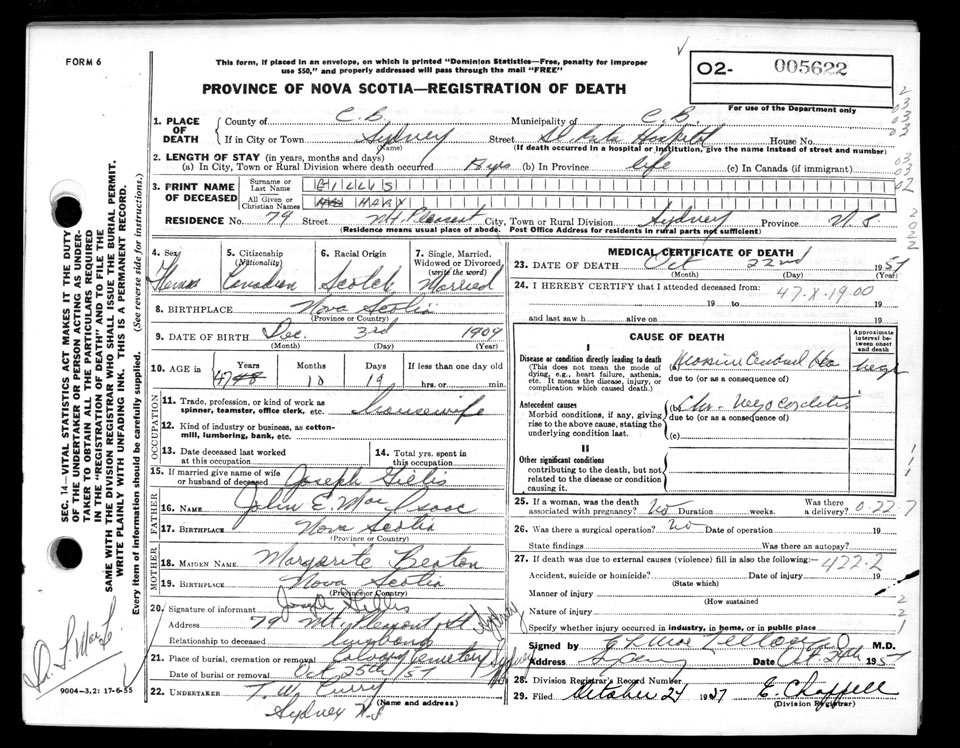 FORM 6
This form, if placed in an envelope, on which is printed "Dominion Statistics—Free, penalty for improper
use $50," and properly addressed will pass through the mail "FREE"
O2- 005622
For use of the Department only
PROVINCE OF NOVA SCOTIA—REGISTRATION OF DEATH
1. PLACE OF DEATH
County of C.B. Municipality of C.B.
If in City or Town Sydney Street St. Rita Hospital House No.
(Name) (If death occurred in a hospital or institution, give the name instead of street and number)
2. LENGTH OF STAY (in years, months and days)
(a) In City, Town or Rural Division where death occurred (b) In Province life (c) In Canada (if immigrant)
3. PRINT NAME OF DECEASED
Surname or Last Name GILLIS
All Given or Christian Names MARY
RESIDENCE No. 79 Street Mt. Pleasant City, Town or Rural Division Sydney Province N.S
(Residence means usual place of abode. Post Office Address for residents in rural parts not sufficient)
4. Sex
5. Citizenship (Nationality) Canadian
6. Racial Origin Scotch
7. Single, Married, Widowed or Divorced (write the word) Married
8. BIRTHPLACE Nova Scotia
(Province or Country)
9. DATE OF BIRTH Dec. 3rd 1909
(Month) (Day) (Year)
10. AGE in Years 47 48 Months 10 Days 19 If less than one day
hrs. or min.
OCCUPATION
11. Trade, profession, or kind of work as spinner, teamster, office clerk, etc. Housewife
12. Kind of industry or business, as cotton-mill, lumbering, bank, etc.
13. Date deceased last worked at this occupation
14. Total yrs. spent in this occupation
15. If married give name of wife or husband of deceased Joseph Gillis
FATHER
16. NAME John E. Mac Isaac
17. BIRTHPLACE Nova Scotia
(Province or Country)
MOTHER
18. MAIDEN NAME Margarite Beaton
19. BIRTHPLACE Nova Scotia
(Province or Country)
20. Signature of informant Joseph Gillis
Address 79 Mt. Pleasant St Sydney
Relationship to deceased husband
21. Place of burial, cremation or removal Calvary Cemetery Sydney
Date of burial or removal Oct 25th/57
22. UNDERTAKER T.W. Curry
(Name and address)
Sydney N.S
MEDICAL CERTIFICATE OF DEATH
23. DATE OF DEATH Oct 22nd 1957
(Month) (Day) (Year)
24. I HEREBY CERTIFY that I attended deceased from: 47-X-19.00
19 to 19
and last saw h alive on 19
CAUSE OF DEATH
Approximate interval between onset and death
I
Disease or condition directly leading to death (a)
(This does not mean the mode of dying, e.g., heart failure, asthenia, etc. It means the disease, injury, or complication which caused death.)
due to (or as a consequence of)
Antecedent causes (b)
Morbid conditions, if any, giving rise to the above cause, stating the underlying condition last.
due to (or as a consequence of)
(c)
II
Other significant conditions
contributing to the death, but not related to the disease or condition causing it.
25. If a woman, was the death associated with pregnancy? No Duration weeks. Was there a delivery? 0-22.7
26. Was there a surgical operation? No Date of operation 19
State findings Was there an autopsy?
27. If death was due to external causes (violence) fill in also the following: 422.2
Accident, suicide or homicide? Date of injury 19
(State which)
Manner of injury
(How sustained)
Nature of injury
Specify whether injury occurred in industry, in home, or in public place
Signed by M.D.
Address Sydney Date 1957
28. Division Registrar's Record Number
29. Filed October 24 1957 E. Chappell
(Division Registrar)
SEC. 14—VITAL STATISTICS ACT MAKES IT THE DUTY
OF THE UNDERTAKER OR PERSON ACTING AS UNDER-
TAKER TO OBTAIN ALL THE PARTICULARS REQUIRED
IN THE "REGISTRATION OF DEATH" AND TO FILE THE
SAME WITH THE DIVISION REGISTRAR WHO SHALL ISSUE THE BURIAL PERMIT.
WRITE PLAINLY WITH UNFADING INK. THIS IS A PERMANENT RECORD.
Every item of information should be carefully supplied. (See reverse side for instructions.)
9004—3.2: 17-6-55